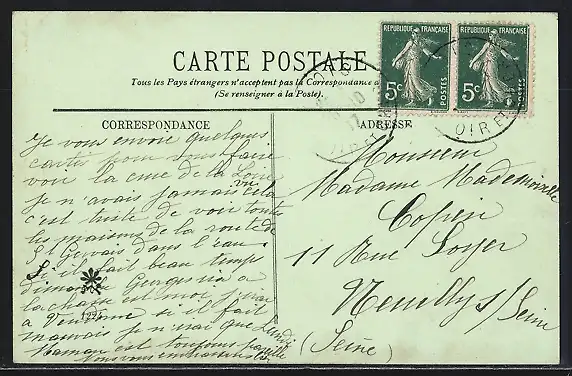 CARTE POSTALE
Tous les Pays étrangers n'acceptent pas la Correspondance a
(Se renseigner à la Poste).
REPUBLIQUE FRANÇAISE
5c
POSTES
REPUBLIQUE FRANÇAISE
5c
POSTES
LOIR ET
CORRESPONDANCE
Je vous envoie quelques
cartes pour vous faire
voir la crue de la Loire
je n'avais jamais vu cela
c'est triste de voir toutes
les maisons de la route de
St Gervais dans l'eau
Si il fait beau temps
dimanche Georges ira a
la chasse et moi j'irai
a Vendome si il fait
mauvais je n'irai que Lundi
Maman est toujours pareille
tous vous embrassent
122
ADRESSE
Monsieur
Madame Mademoiselle
11 Rue Soyer
Neuilly s/ Seine
(Seine)